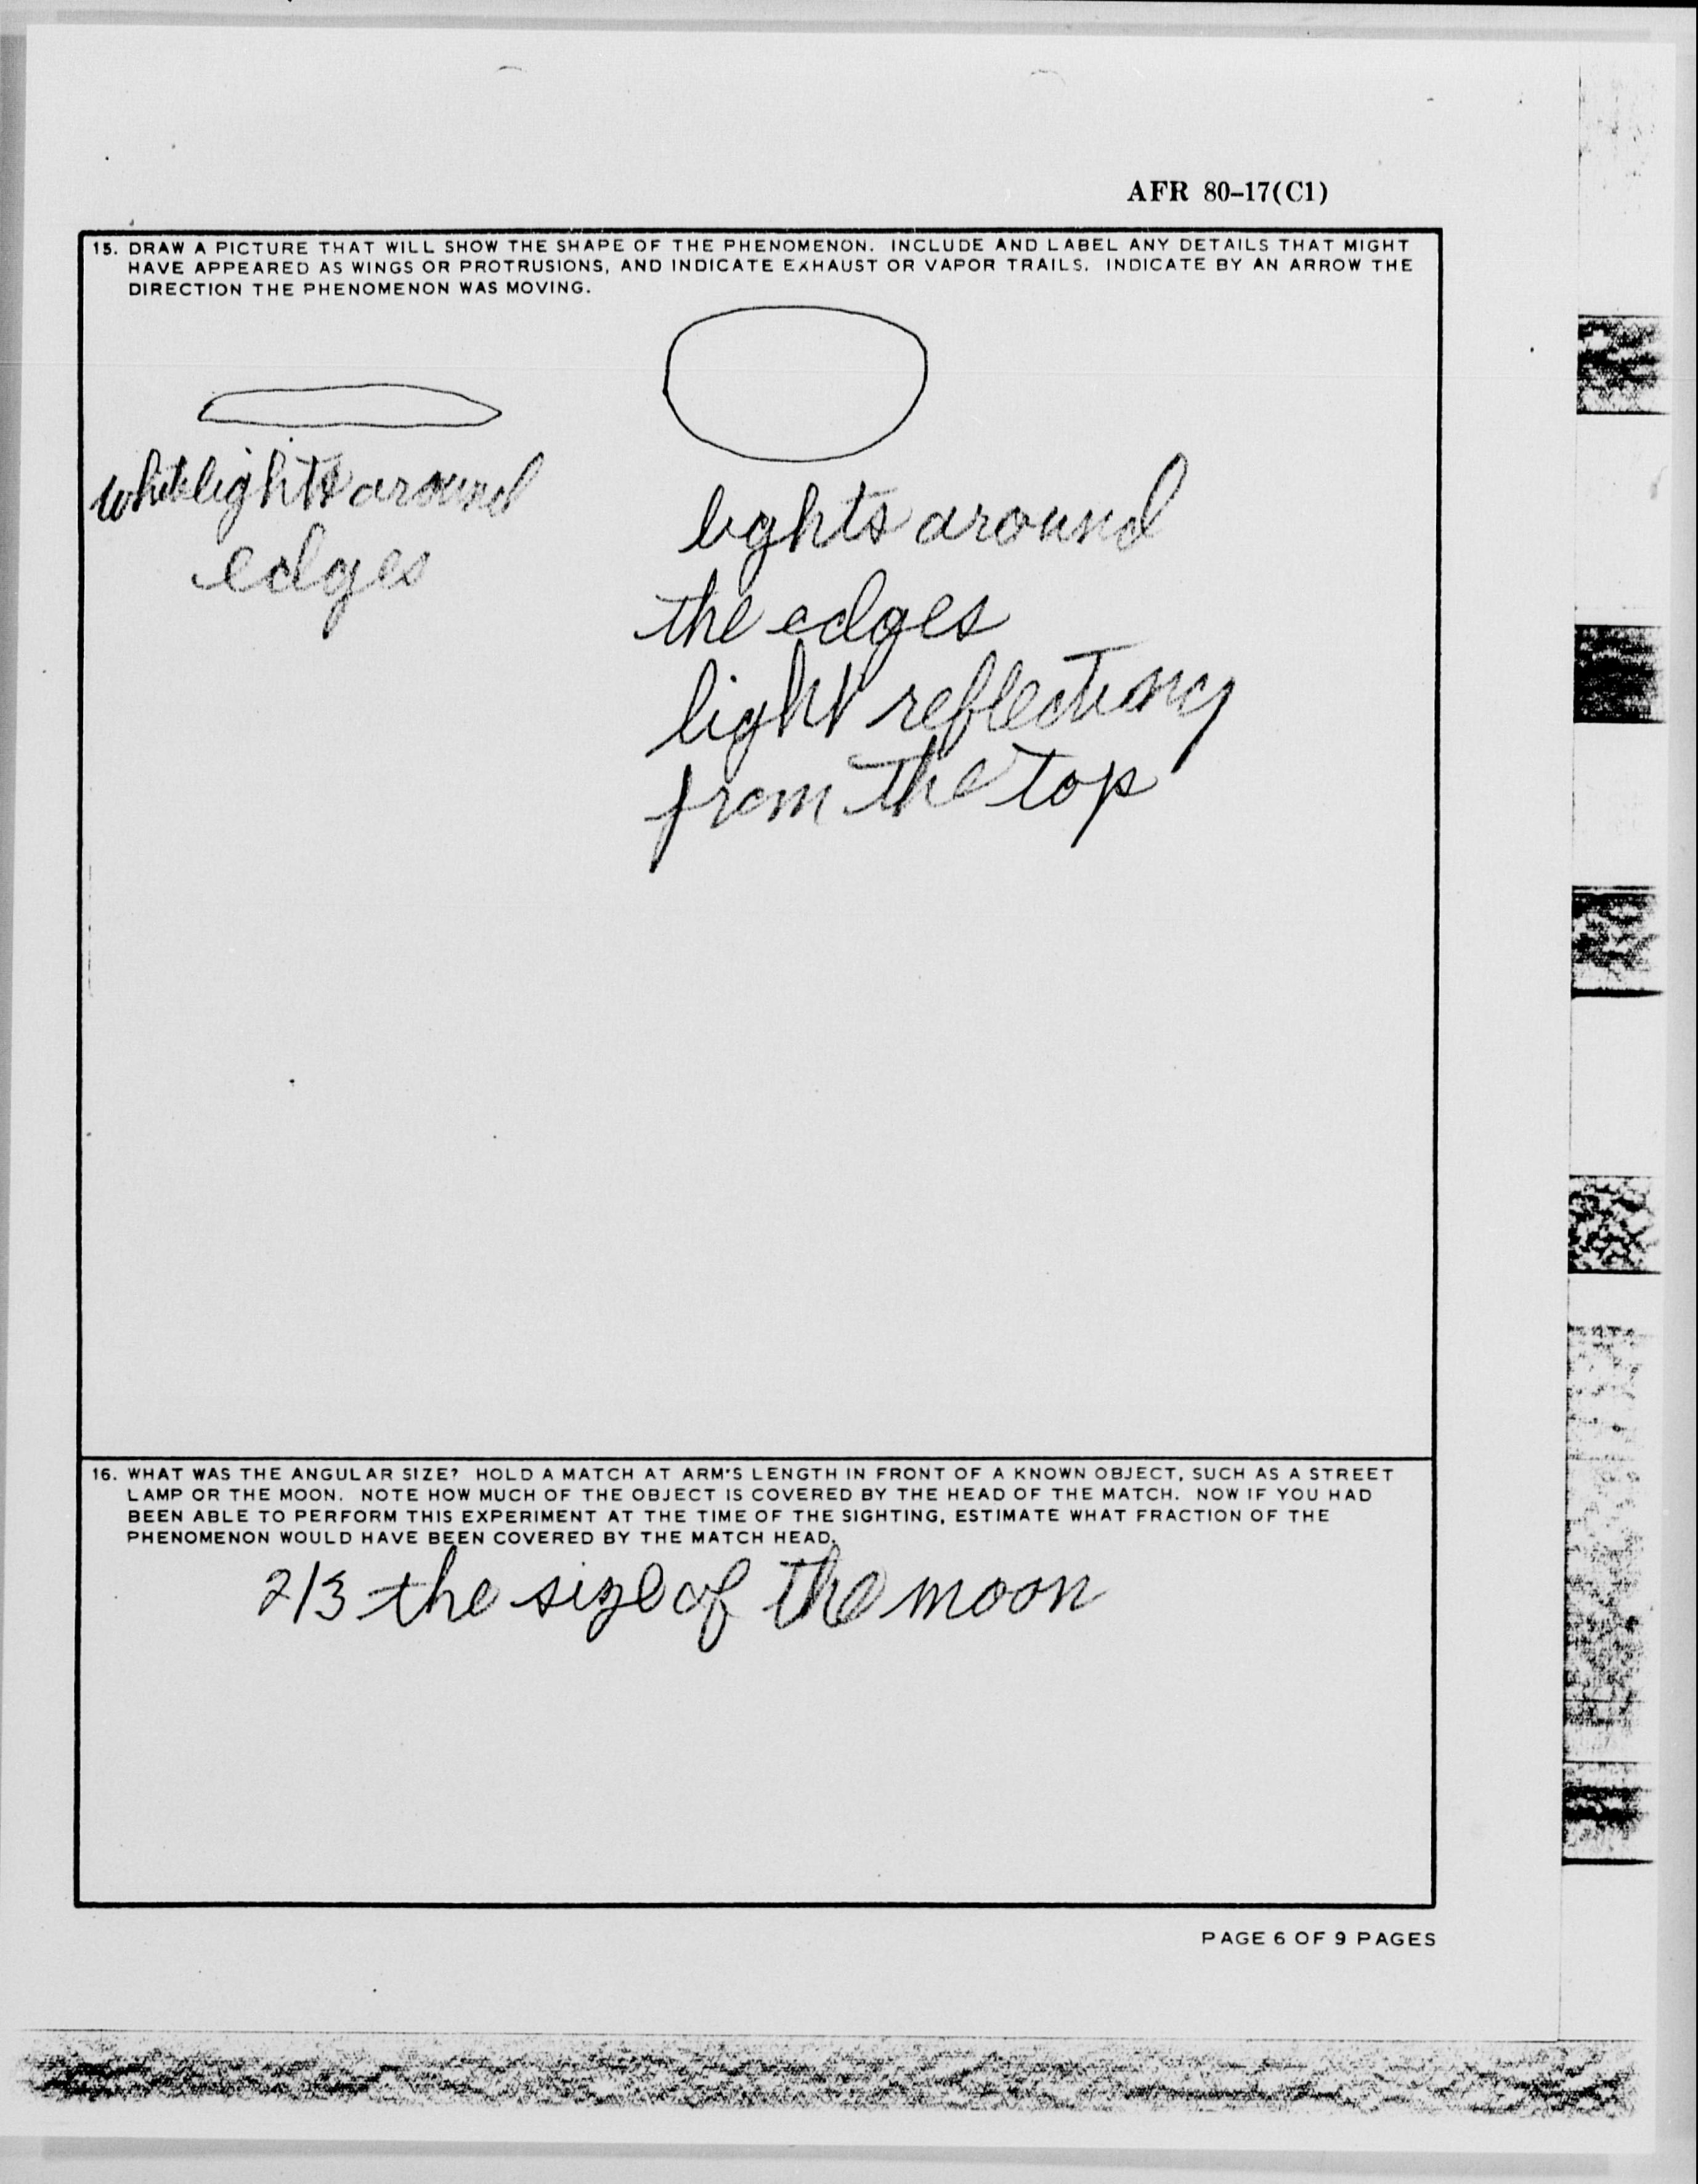 AFR 80-17(C1)
15. DRAW A PICTURE THAT WILL SHOW THE SHAPE OF THE PHENOMENON. INCLUDE AND LABEL ANY DETAILS THAT MIGHT
HAVE APPEARED AS WINGS OR PROTRUSIONS, AND INDICATE EXHAUST OR VAPOR TRAILS. INDICATE BY AN ARROW THE
DIRECTION THE PHENOMENON WAS MOVING.
white lights around
edges
lights around
the edges
light reflecting
from the top
16. WHAT WAS THE ANGULAR SIZE? HOLD A MATCH AT ARM'S LENGTH IN FRONT OF A KNOWN OBJECT, SUCH AS A STREET
LAMP OR THE MOON. NOTE HOW MUCH OF THE OBJECT IS COVERED BY THE HEAD OF THE MATCH. NOW IF YOU HAD
BEEN ABLE TO PERFORM THIS EXPERIMENT AT THE TIME OF THE SIGHTING, ESTIMATE WHAT FRACTION OF THE
PHENOMENON WOULD HAVE BEEN COVERED BY THE MATCH HEAD.
2/3 the size of the moon
PAGE 6 OF 9 PAGES